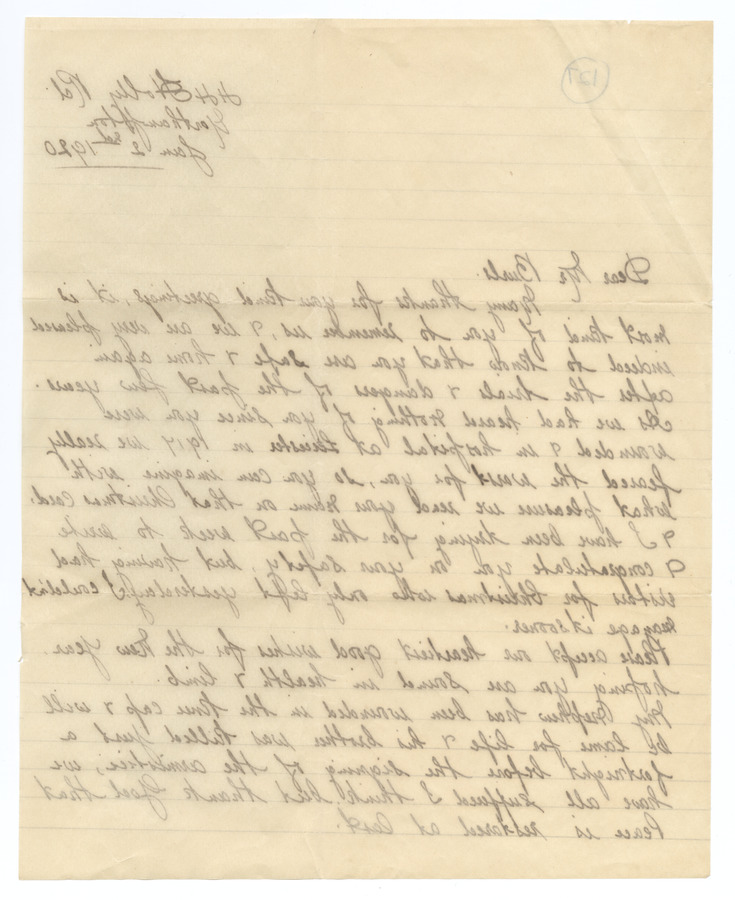 127
44 Holly Rd.
Northampton
Jan 2nd 1920
Dear Mr
Many thanks for you kind greetings, it is
most kind of you to remember us, & we are very pleased
indeed to know that you are safe & home again
after the trials & dangers of the past few years.
As we had heard nothing of you since you were
wounded & in hospital at Leicester in 1917 we really
feared the worst for you, so you can imagine with
what pleasure we read your name on that Christmas Card.
& I have been trying for the past week to write
& congratulate you on your safety, but having had
visitors for Christmas who only left yesterday I couldn't
manage it sooner.
Please accept our heartiest good wishes for the New Year
hoping you are sound in health & limb.
My Nephew has been wounded in the knee cap & will
be lame for life & his brother was killed just a
fortnight before the signing of the armistice, we
have all suffered I think, but thank God that
Peace is restored at last.